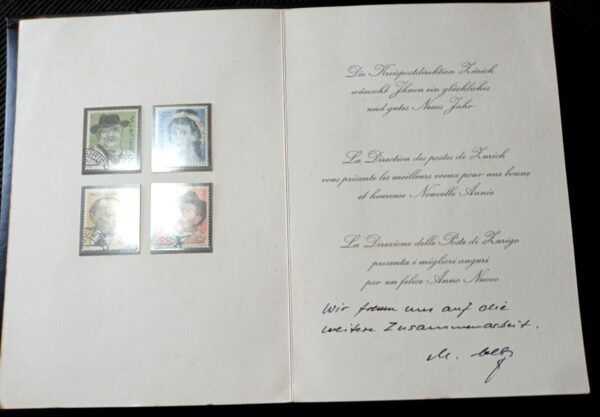 HELVETIA
Die Kreispostdirektion Zürich
wünscht Ihnen ein glückliches
und gutes Neues Jahr
La Direction des postes de Zurich
vous présente les meilleurs voeux pour une bonne
et heureuse Nouvelle Année
La Direzione delle Poste di Zurigo
presenta i migliori auguri
per un felice Anno Nuovo
Wir freuen uns auf die
weitere Zusammenarbeit.
M.